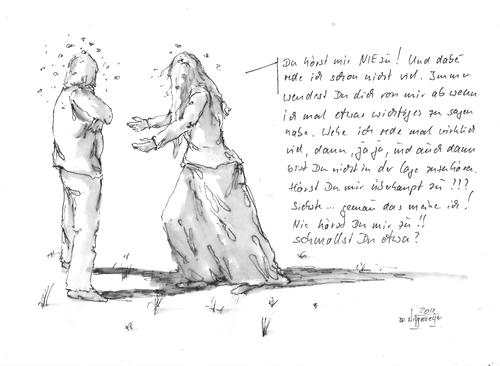 Du hörst mir NIE zu! Und dabei
rede ich schon nicht viel. Immer
wendest Du dich von mir ab wenn
ich mal etwas wichtiges zu sagen
habe. Wehe ich rede mal wirklich
viel, dann, ja ja, und auch dann
bist Du nicht in der Lage zuzuhören.
Hörst Du mir überhaupt zu ???
Siehste... genau das meine ich!
Nie hörst Du mir zu!!
Schmollst Du etwa?
2012